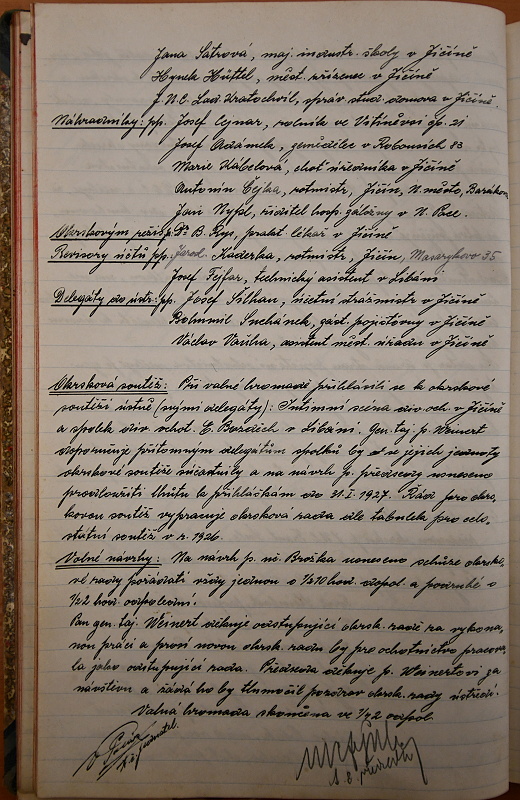 Jana Satrová, maj. industr. školy v Jičíně
Hynek Hüttel, měst. zřízenec v Jičíně
J.U.C. Lad. Kratochvíl, správ. stud. domova v Jičíně.
Náhradníky: pp. Josef Cejnar, rolník ve Vitiněvsi čp. 21
Josef Adámek, zemědělec v Robousích 83
Marie Kábelová, choť úředníka v Jičíně
Antonín Čejka, rotmistr, Jičín, N. město,
Jan Nypl, ředitel hosp. záložny v N. Pace.
Okrskovým režis. p. Dr. B. Rys, prakt. lékař v Jičíně
Revisory účtů pp. Jarosl. Kaderka, rotmistr, Jičín, Masarykovo 35
Josef Fejfar, technický asistent v Libáni
Delegáty do ústř.: pp. Josef Solhan, účetní strážmistr v Jičíně
Bohumil Suchánek, zást. pojišťovny v Jičíně
Václav asistent měst. úřadu v Jičíně
Okrsková soutěž: Při valné hromadě přihlásili se k okrskové
soutěži ústně (svými delegáty): Intimní scéna div. och. v Jičíně
a spolek div. ochot. E. Bozděch v Libáni. Gen. taj. p. Weinert
doporučuje přítomným delegátům spolků by se jejich jednoty
okrskové soutěže účastnily a na návrh p. předsedy usneseno
prodloužiti lhůtu k přihláškám do 31. I. 1927. Řád pro okrs-
kovou soutěž vypracuje okrsková rada dle tabulek pro celo-
státní soutěž v r. 1926.
Volné návrhy: Na návrh p. uč. Brožka usneseno schůze okrsko-
vé rady pořádati vždy jednou o ½10 hod. dopol. a podruhé o
½2 hod. odpolední.
Pan gen. taj. Weinert děkuje odstupující okrsk. radě za vykona-
nou práci a prosí novou okrsk. radu by pro ochotnictvo pracova-
la jako odstupující rada. Předseda děkuje p. Weinertovi za
návštěvu a žádá ho by tlumočil pozdrav okrsk. rady ústředí.
Valná hromada skončena ve ½2 odpol.
t. č. jednatel.
t. č. předseda